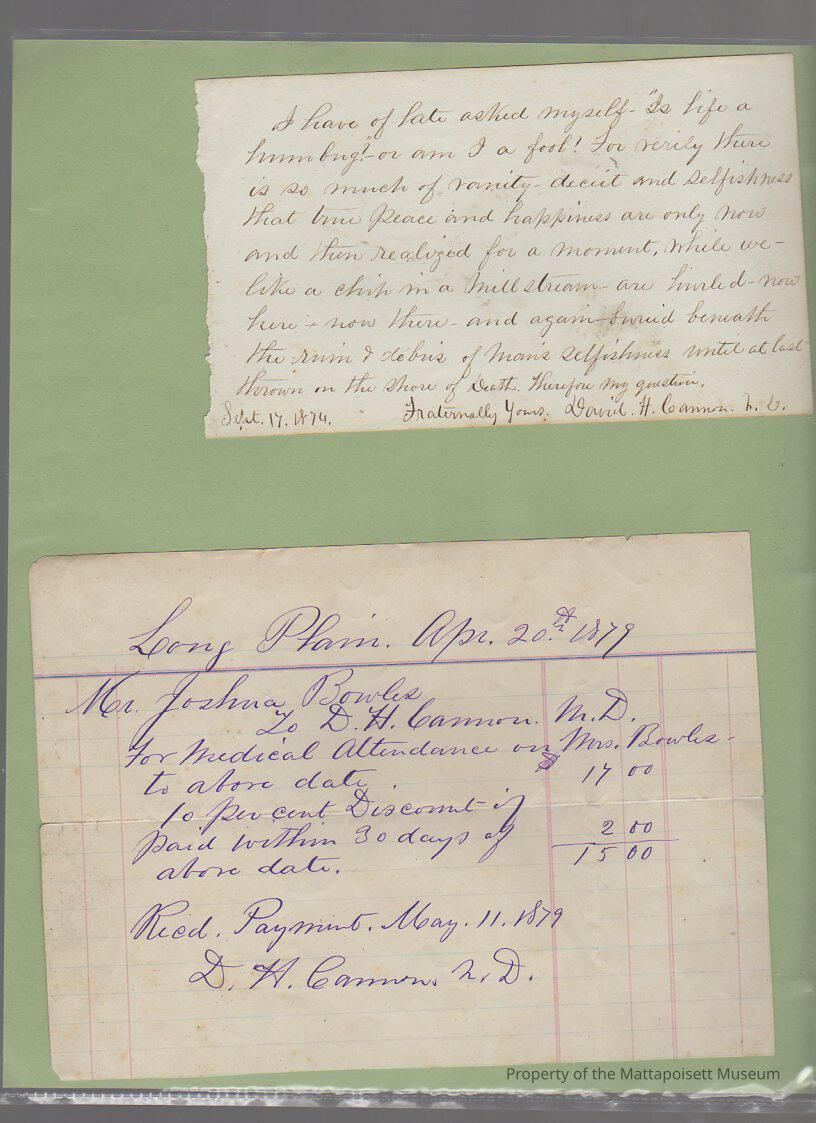 I have of late asked myself - "Is life a
humbug!" - or am I a fool! For verily there
is so much of vanity - deceit and selfishness
that true peace and happiness are only now
and then realized for a moment, while we -
like a chip in a Mill stream - are hurled - now
here - now there - and again - buried beneath
the ruin & debris of Man's selfishness until at last
thrown on the shore of Death. Therefore my question.
Sept. 17. 1874. Fraternally Yours. David. H. Cannon.
Long Plain. Apr. 20th 1879
Mr. Joshua Bowles
To D. H. Cannon. M.D.
For Medical Attendance on Mrs. Bowles -
to above date. $ 17 00
10 per cent Discount if
paid within 30 days of 2 00
above date. 15 00
Recd. Payment. May. 11. 1879
D. H. Cannon. M.D.
Property of the Mattapoisett Museum